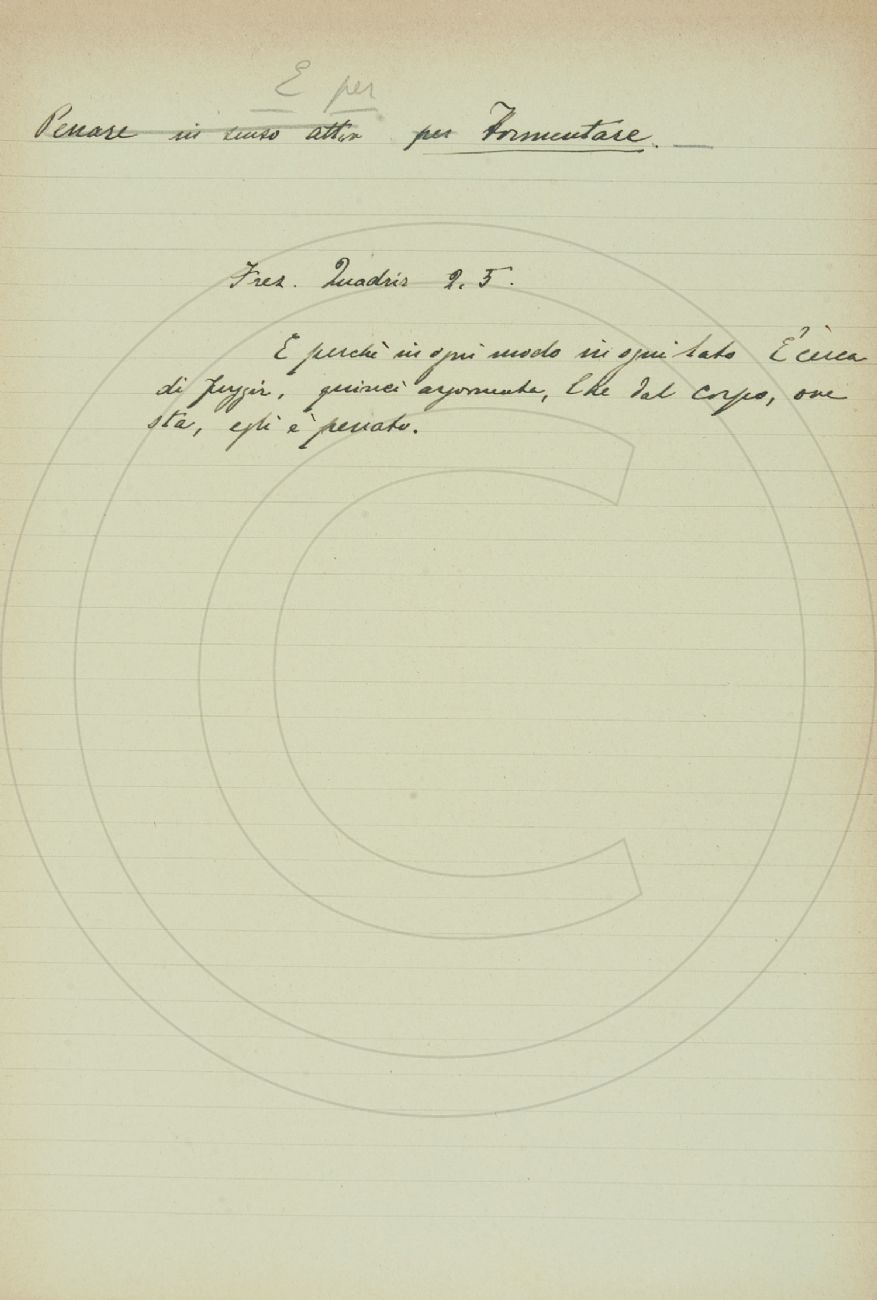 E per
Penare in senso attiv per Tormentare.
Frez. Quadrir 2. 5.
E perchè in ogni modo in ogni lato E' cerca
di fuggir, quinci argomenta, Che dal corpo, ove
sta, egli è penato.